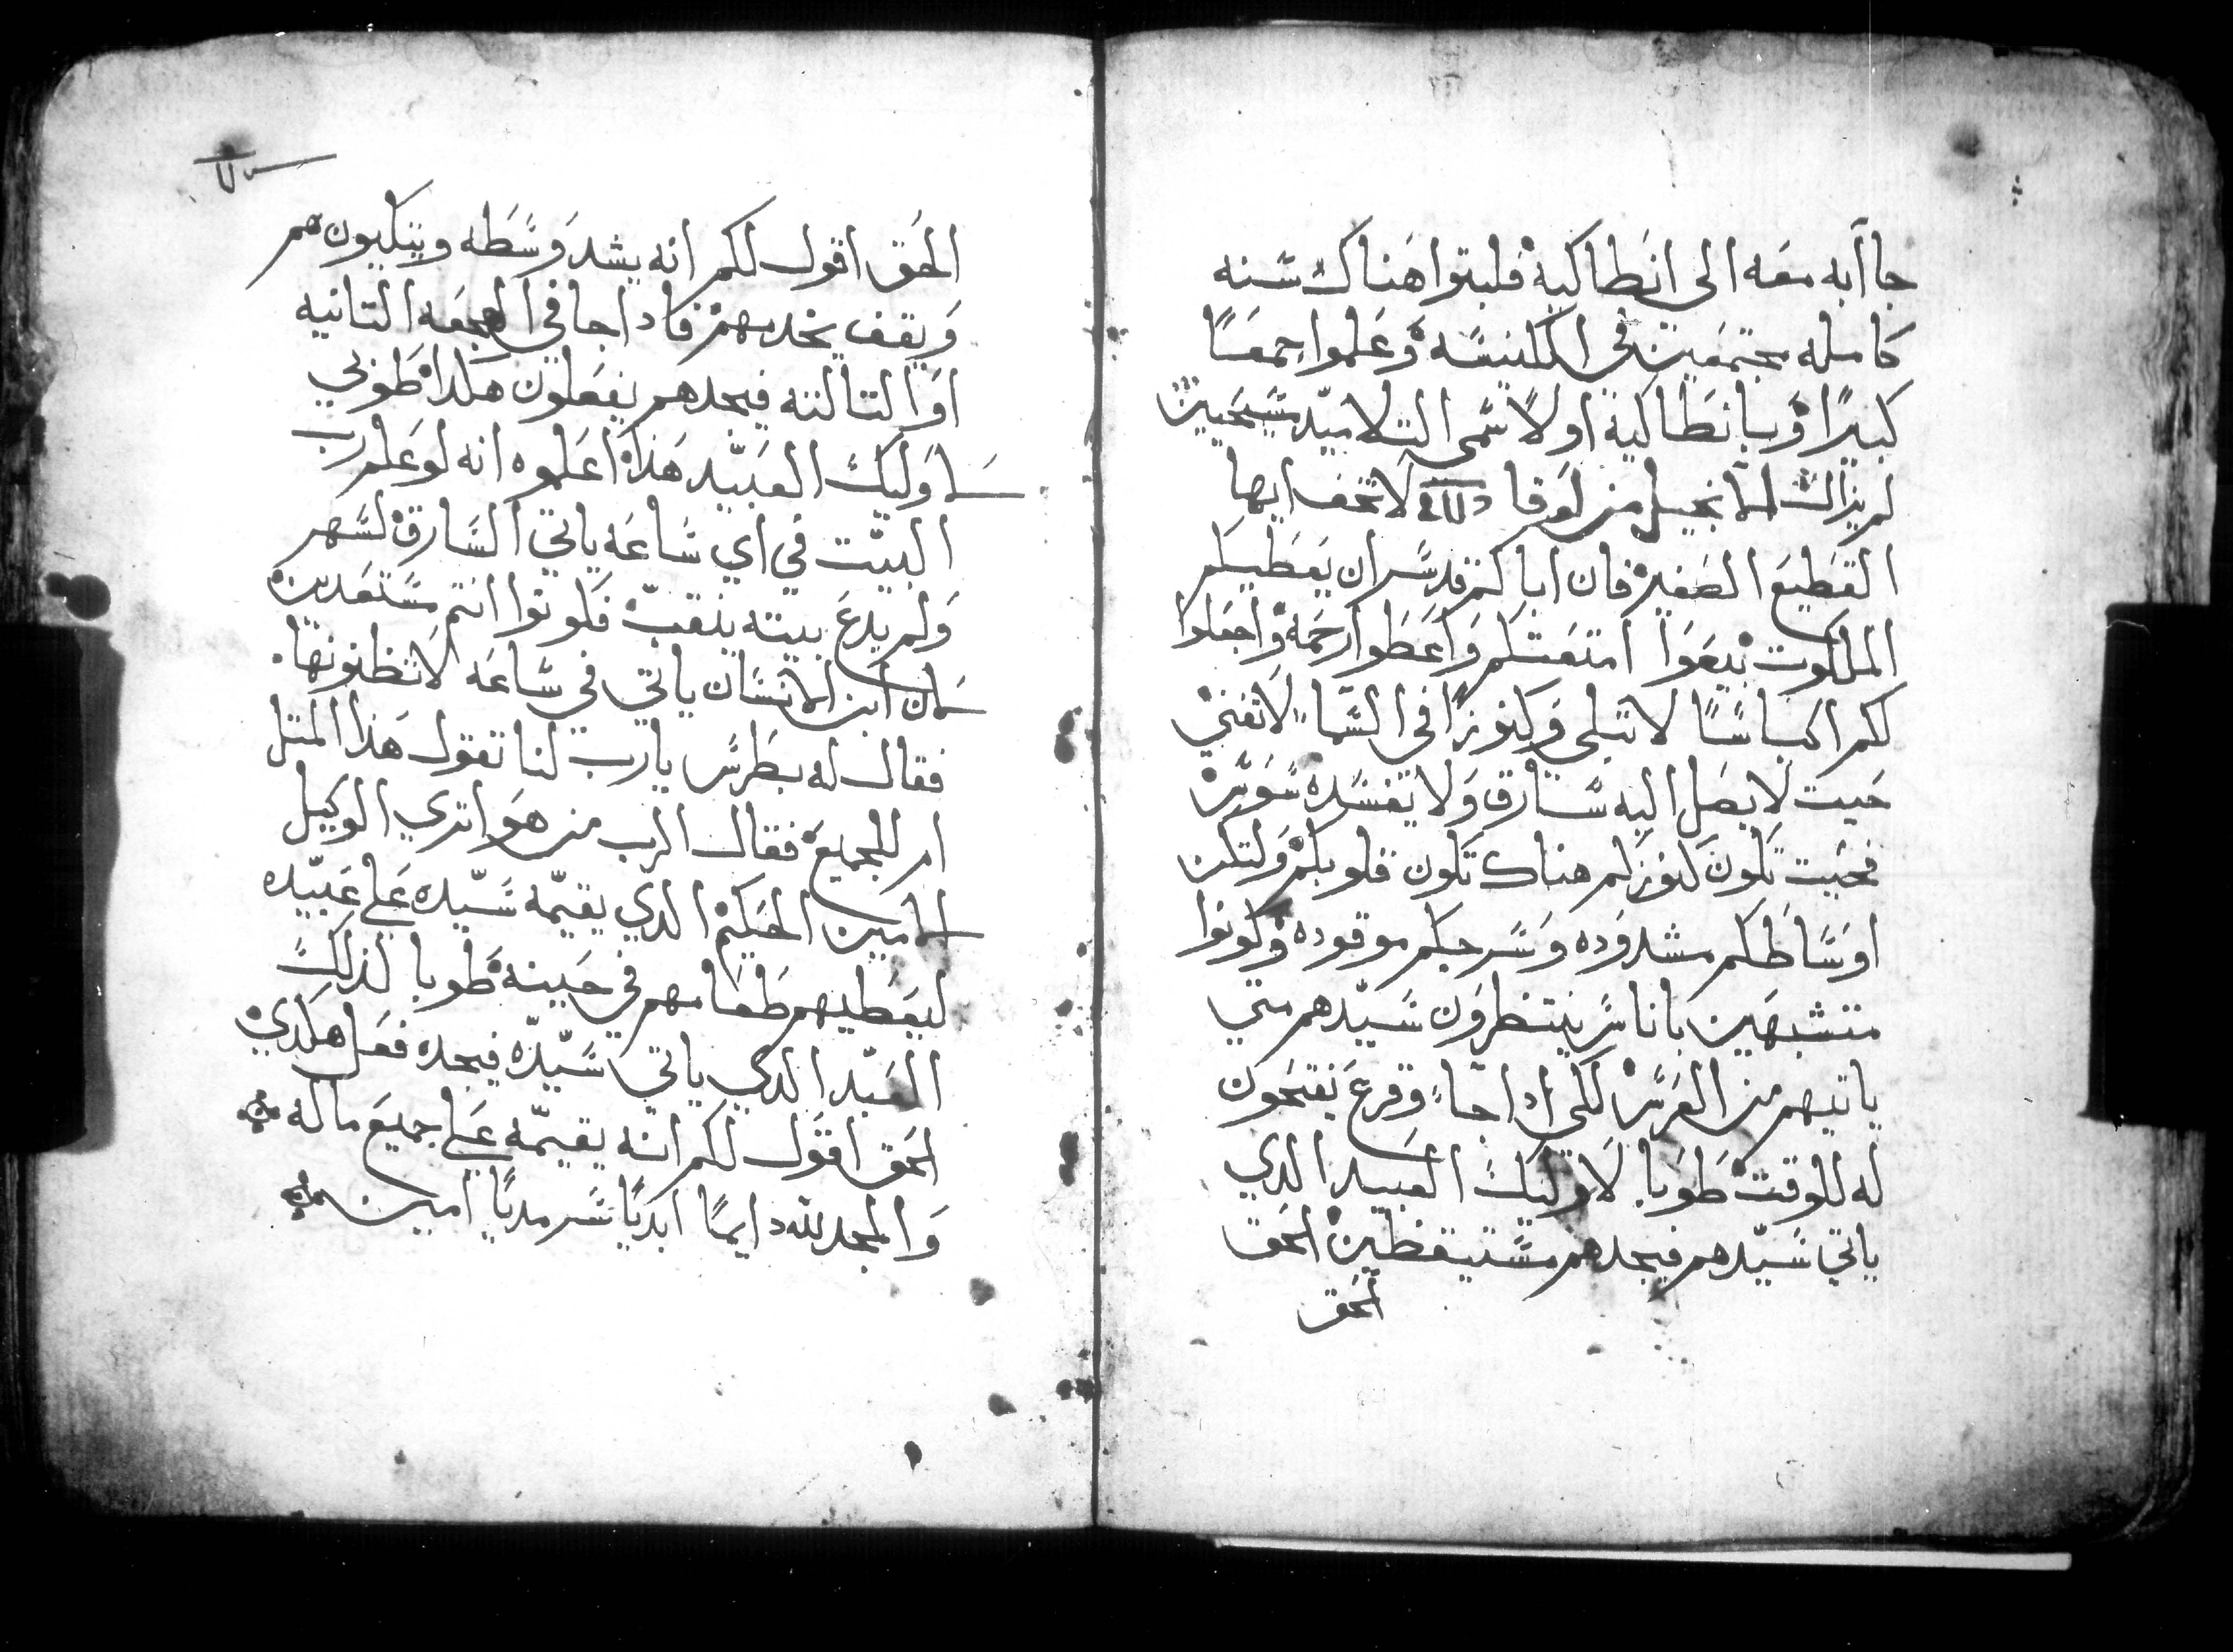 جا ابه معه الى انطاكية فلبتوا هناك سنه
كامله مجتمعين في الكنيسه وعلموا جمعًا
كبيرًا وبانطاكية اولًا سمي التلاميد مسيحيين
لم يزالت الانجيل من لوقا لا تخف ايها
القطيع الصغير فان اباكم قد سر ان يعطيكم
الملكوت بيعوا امتعتكم واعطوا رحمة واجعلوا
لكم اكياسًا لا تبلى وكنوزًا في السما لا تفني
حيت لا يصل اليه سارق ولا يفسده سوس
فحيت تكون كنوزكم هناك تكون قلوبكم ولتكن
اوساطكم مشدوده وسرجكم موقوده وكونوا
متشبهين باناس ينتظرون سيدهم متي
ياتيهم من العرس لكى ادا جاء وقرع يفتحون
له للوقت طوبا لاوليك العبيد الدي
ياتي سيدهم فيجدهم مستيقظين الحق
الحق
الحق اقول لكم انه يشد وسطه ويتكيون هم
ويقف يخدمهم فادا جا في الهجعه التانيه
او التالته فيجدهم يفعلون هكدا طوبي
لاوليك العبيد هذا اعلموه انه لو علم رب
البيت في اي ساعه ياتي السارق لسهر
ولم يدع بيته ينقب فكونوا انتم مستعدين
لان ابن الانسان ياتي في ساعه لا تظنونها
فقال له بطرس يارب لنا تقول هذا المتل
ام للجميع فقال الرب من هو اتري الوكيل
الامين الحكيم الدي يقيمه سيده علي عبيده
ليعطيهم طعامهم في حينه طوبا لذلك
العبد الدي ياتي سيده فيجده فعل هكدي
الحق اقول لكم انه يقيمه علي جميع ماله
والمجد لله دايمًا ابديًا سرمديًا امين